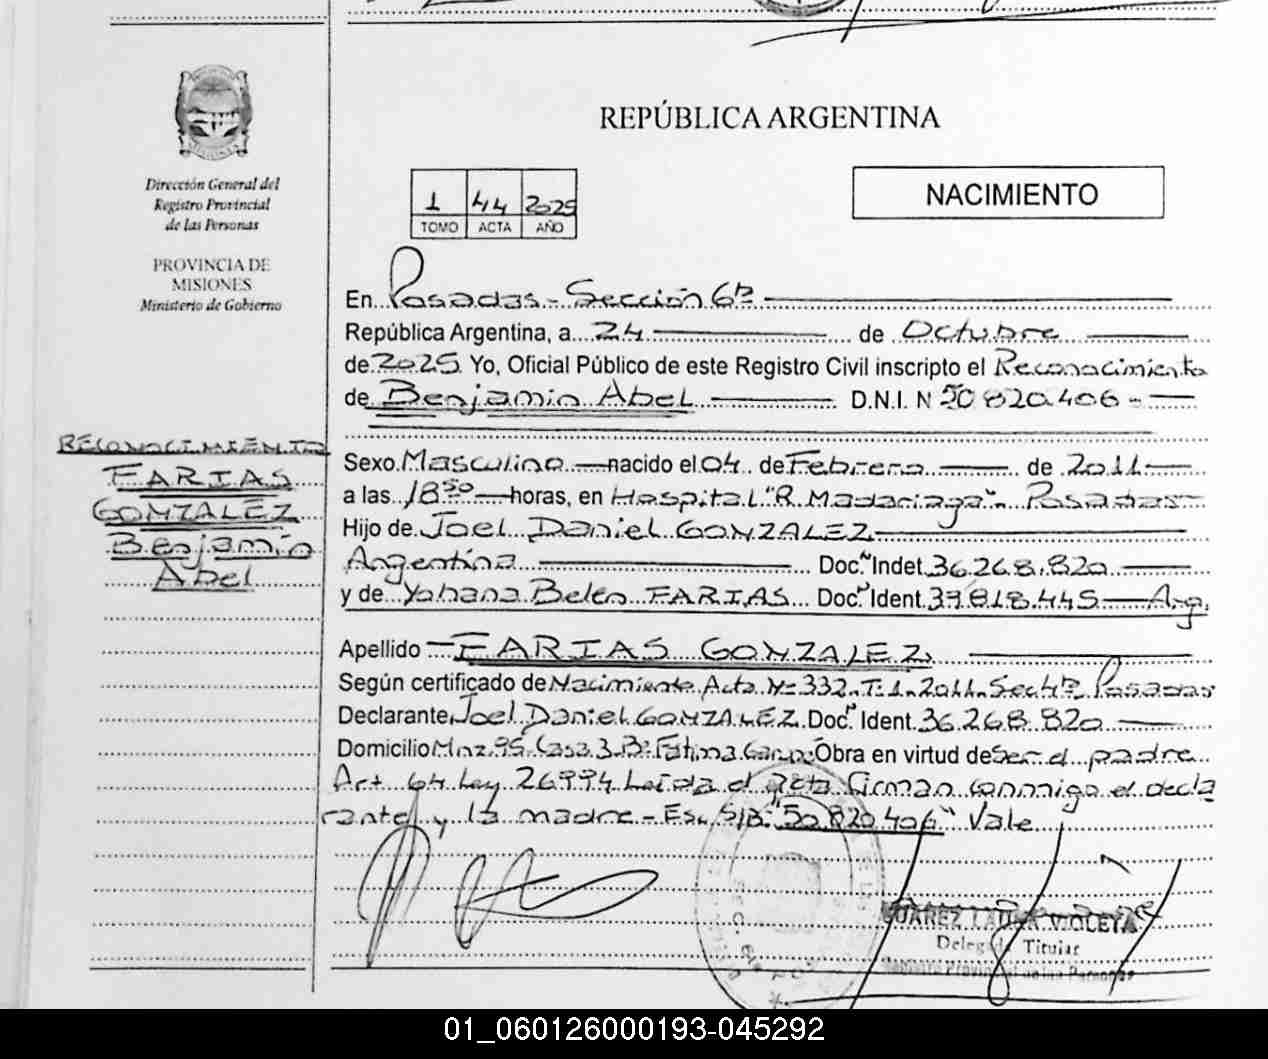 REPÚBLICA ARGENTINA
Dirección General del
Registro Provincial
de las Personas
PROVINCIA DE
MISIONES
Ministerio de Gobierno
1 44 2025
TOMO ACTA AÑO
NACIMIENTO
En Posadas - Sección 6ª
República Argentina, a 24 de Octubre
de 2025 Yo, Oficial Público de este Registro Civil inscripto el Reconocimiento
de Benjamin Abel D.N.I. N 50 820.406 -
RECONOCIMIENTO
FARIAS
GONZALEZ
Benjamin
Abel
Sexo Masculino nacido el 04 de Febrero de 2011
a las 18 50 horas, en Hospital "R. Madariaga" - Posadas
Hijo de Joel Daniel GONZALEZ
Argentina Doc. Indet. 36.268.820
y de Yohana Belen FARIAS Doc. Ident. 39.818.445 Arg.
Apellido FARIAS GONZALEZ
Según certificado de Nacimiento Acta Nº 332 T. 1 2011 Sec 4ª Posadas
Declarante Joel Daniel GONZALEZ Doc. Ident. 36.268.820
Domicilio Mnz 95 Casa 3 Bº Fatima Garu Obra en virtud de Ser el padre
Art 64 Ley 26994 Leida el acta firman conmigo el decla
rante y la madre - Esc S/B: "50.820.406" Vale
SUAREZ LAURA VIOLETA
Delegada Titular
Registro Provincial de las Personas
01_060126000193-045292